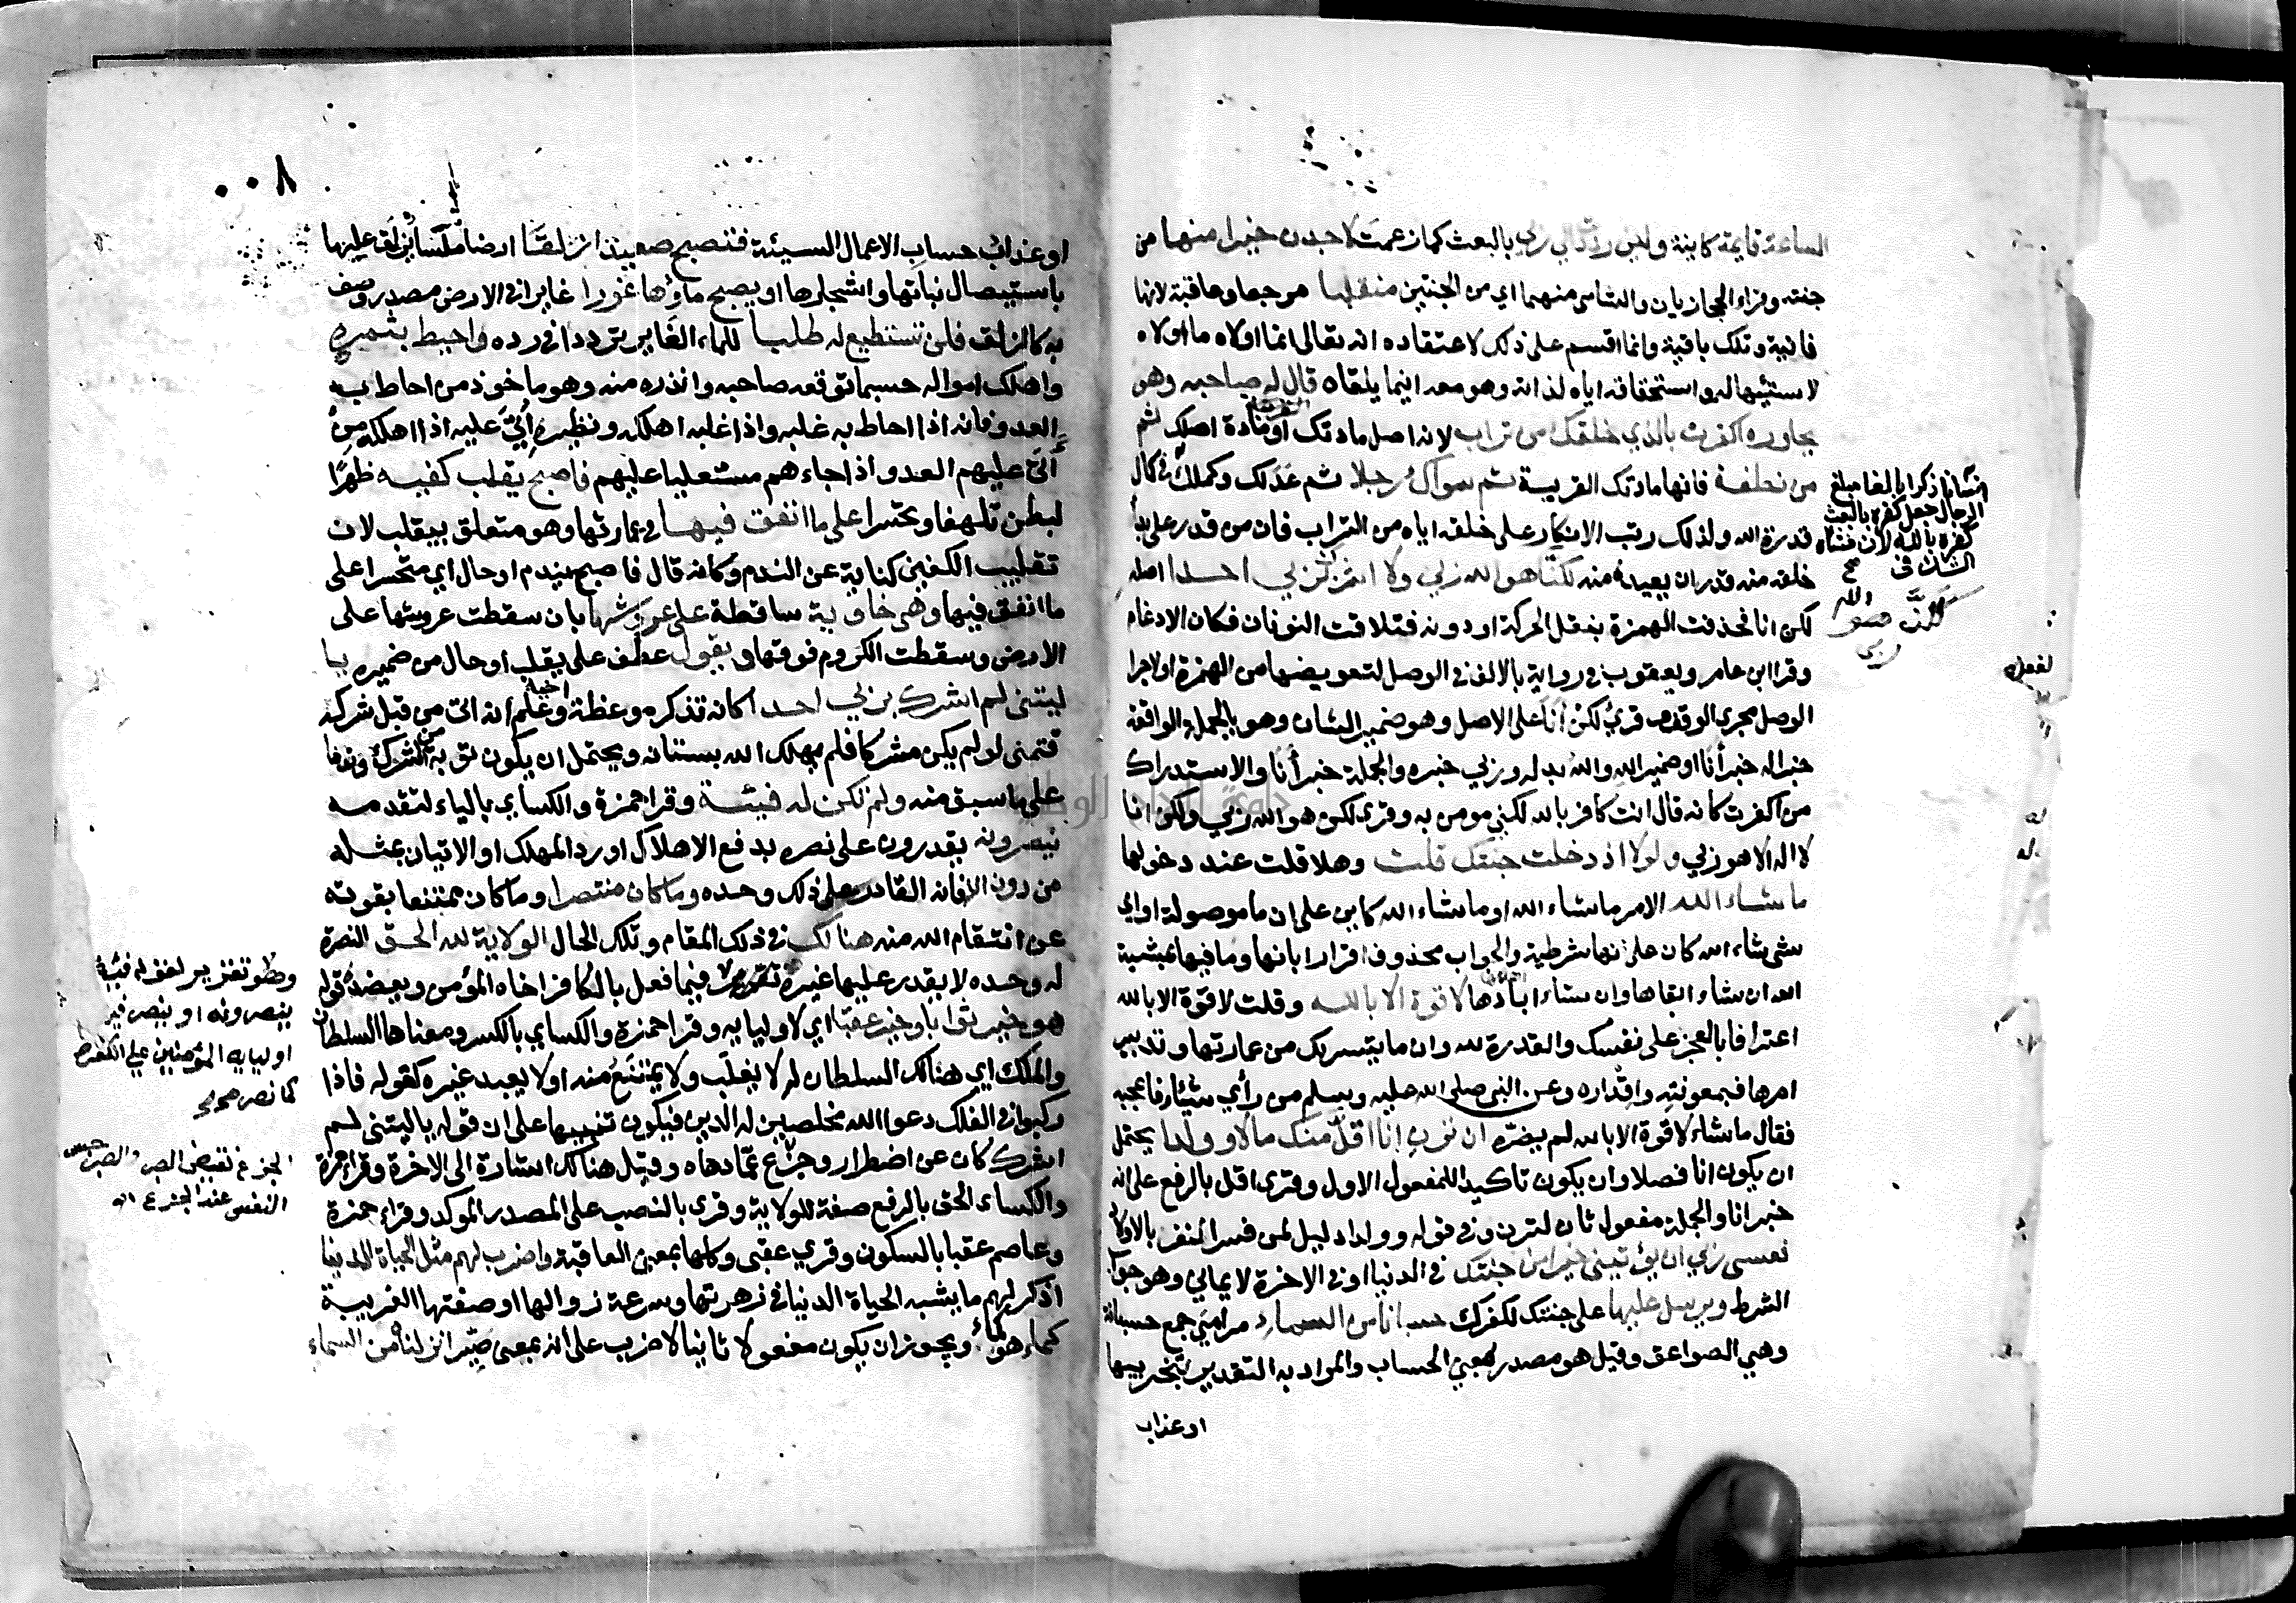 الساعة قايمة كاينة ولئن رددت الي ربي بالبعث كما زعمت لاجدن خيرا منها من
جنته وقراء الحجازيان والشامي منهما اي من الجنتين منقلبا مرجعا وعاقبة لانها
فانية وتلك باقية وانما اقسم على ذلك لاعتقاده انه تعالى انما اولاه ما اولاه
لاستيهاله واستحقاقه اياه لذاته وهو معه اينما يلقاه قال له صاحبه وهو
يحاوره اكفرت بالذي خلقك من تراب لانه اصل مادتك او مادة اصلك ثم
من نطفة فانها مادتك القريبة ثم سواك رجلا ثم عدلك وكملك في كمال
قدرة الله ولذلك رتب الانكار على خلقه اياه من التراب فان من قدر على بدأ
خلقه منه قدر ان يعيده منه لكنا هو الله ربي ولا اشرك بربي احدا اصله
لكن انا فحذفت الهمزة بنقل الحركة او دونه فتلاقت النونان فكان الادغام
وقرا ابن عامر ويعقوب في رواية بالالف في الوصل لتعويضها من الهمزة اولاجرا
الوصل مجرى الوقف وقرئ لكن انا على الاصل وهو ضمير الشان وهو بالجملة الواقعة
خبرا له خبر أنا او ضمير الله والله بدله وربي خبره والجملة خبر أنا والاستدراك
من اكفرت كانه قال انت كافر بالله لكني مومن به وقرى لكن هو الله ربي ولكن انا
لا اله الا هو ربي ولولا اذ دخلت جنتك قلت وهلا قلت عند دخولها
ما شاء الله الامر ما شاء الله او ما شاء الله كاين على ان ما موصولة او اي
شي شاء الله كان على انها شرطية والجواب محذوف اقرارا بانها وما فيها بمشية
الله ان شاء ابقاها وان شاء ابادها لا قوة الا بالله وقلت لا قوة الا بالله
اعترافا بالعجز على نفسك والقدرة لله وان ما يتسر لك من عمارتها وتدبير
امرها فبمعونته واقداره وعن النبي صلى الله عليه وسلم من رأي شيئا فاعجبه
فقال ما شاء لا قوة الا بالله لم يضره ان ترن انا اقل منك مالا وولدا يحتمل
ان يكون انا فصلا وان يكون تاكيدا للمفعول الاول وقرى اقل بالرفع على انه
خبر انا والجملة مفعول ثان لترن وفي قوله وولدا دليل لمن فسر النفر بالاولاد
فعسى ربي ان يؤتيني خيرا من جنتك في الدنيا او في الاخرة لايماني وهو جواب
الشرط ويرسل عليها على جنتك لكفرك حسبانا من السماء مرامي جمع حسبانة
وهي الصواعق وقيل هو مصدر بمعني الحساب والمراد به التقدير بتخريبها
او عذاب
انسانا ذكرا بالغا مبلغ
الرجال جعل كفره بالبعث
كفره بالله لان منشاه
الشك في
صح
لكن هو الله
ربي
او عذاب حساب الاعمال السيئة فتصبح صعيدا زلقا ارضا ملسا يزلق عليها
باستيصال نباتها واشجارها او يصبح ماؤها غورا غايرا في الارض مصدر وصف
به كالزلق فلن تستطيع له طلبا للماء الغاير ترددا في رده واحيط بثمره
واهلك امواله حسبما توقعه صاحبه وانذره منه وهو ماخوذ من احاط به
العدو فانه اذا احاط به غلبه واذا غلبه اهلكه ونظيره أتي عليه اذا اهلكه من
أتى عليهم العدو اذا جاءهم مستعليا عليهم فاصبح يقلب كفيه ظهرا
لبطن تلهفا وتحسرا على ما انفق فيها في عمارتها وهو متعلق بيقلب لان
تقليب الكفين كناية عن الندم وكانه قال فاصبح يندم او حال اي متحسرا على
ما انفق فيها وهي خاوية ساقطة على عروشها بان سقطت عروشها على
الارض وسقطت الكروم فوقها ويقول عطف على يقلب او حال من ضميره يا
ليتني لم اشرك بربي احدا كانه تذكر موعظة اخيه وعلم انه اتى من قبل شركه
فتمنى لو لم يكن مشركا فلم يهلك الله بستانه ويحتمل ان يكون توبة من الشرك وندما
على ما سبق منه ولم تكن له فيئة وقرا حمزة والكسائ بالياء لتقدمه
ينصرونه يقدرون على نصره بدفع الاهلاك او رد المهلك او الاتيان بمثله
من دون الله فانه القادر على ذلك وحده وما كان منتصرا وما كان ممتنعا بقوته
عن انتقام الله منه هنالك في ذلك المقام وتلك الحال الولاية لله الحق النصرة
له وحده لا يقدر عليها غيره فيما فعل بالكافر اخاه المؤمن ويعضده قوله
هو خير ثوابا وخير عقبا اي لاوليايه وقرا حمزة والكساي بالكسر ومعناها السلطان
والملك اي هنالك السلطان له لا يغلب ولا يمتنع منه او لا يعبد غيره كقوله فاذا
ركبوا في الفلك دعوا الله مخلصين له الدين فيكون تنبيها على ان قوله يا ليتني لم
اشرك كان عن اضطرار وجزع مما دهاه وقيل هنالك اشارة الى الاخرة وقراء حمزة
والكساء الحق بالرفع صفة للولاية وقرى بالنصب على المصدر الموكد وقراء حمزة
وعاصم عقبا بالسكون وقري عقبى وكلها بمعنى العاقبة واضرب لهم مثل الحياة الدنيا
اذكر لهم ما يشبه الحياة الدنيا في زهرتها وسرعة زوالها او صفتها الغريبة
كماء هو كماء ويجوز ان يكون مفعولا ثانيا لاضرب على انه بمعنى صير انزلناه من السماء
ينصرونه او ينصر فيها
اوليايه المؤمنين علي الكفرة
كما نصر
الجزع نقيض الصبر والصبر حبس
النفس عند الجزع